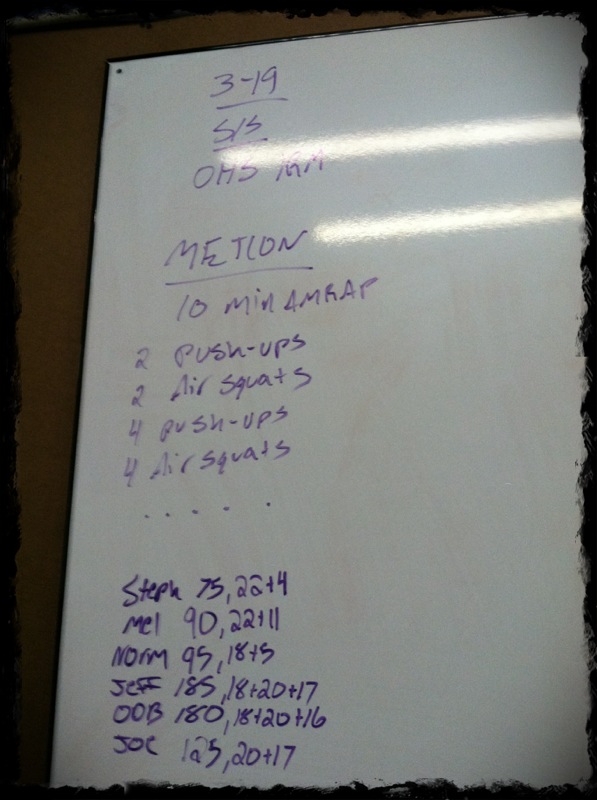 3-19
S/S
OHS 1RM
METCON
10 min AMRAP
2 PUSH-UPS
2 Air Squats
4 PUSH-UPS
4 Air Squats
. . . . .
Steph 75, 22+4
Mel 90, 22+11
NORM 95, 18+5
Jeff 185, 18+20+17
OOB 180, 18+20+16
JOE 125, 20+17